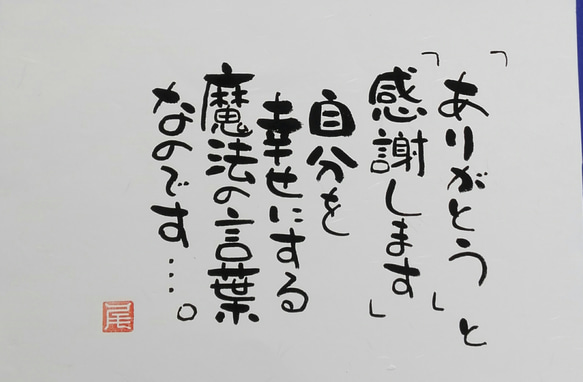 「ありがとう」と
「感謝します」
自分を
幸せにする
魔法の言葉
なのです…。
尾